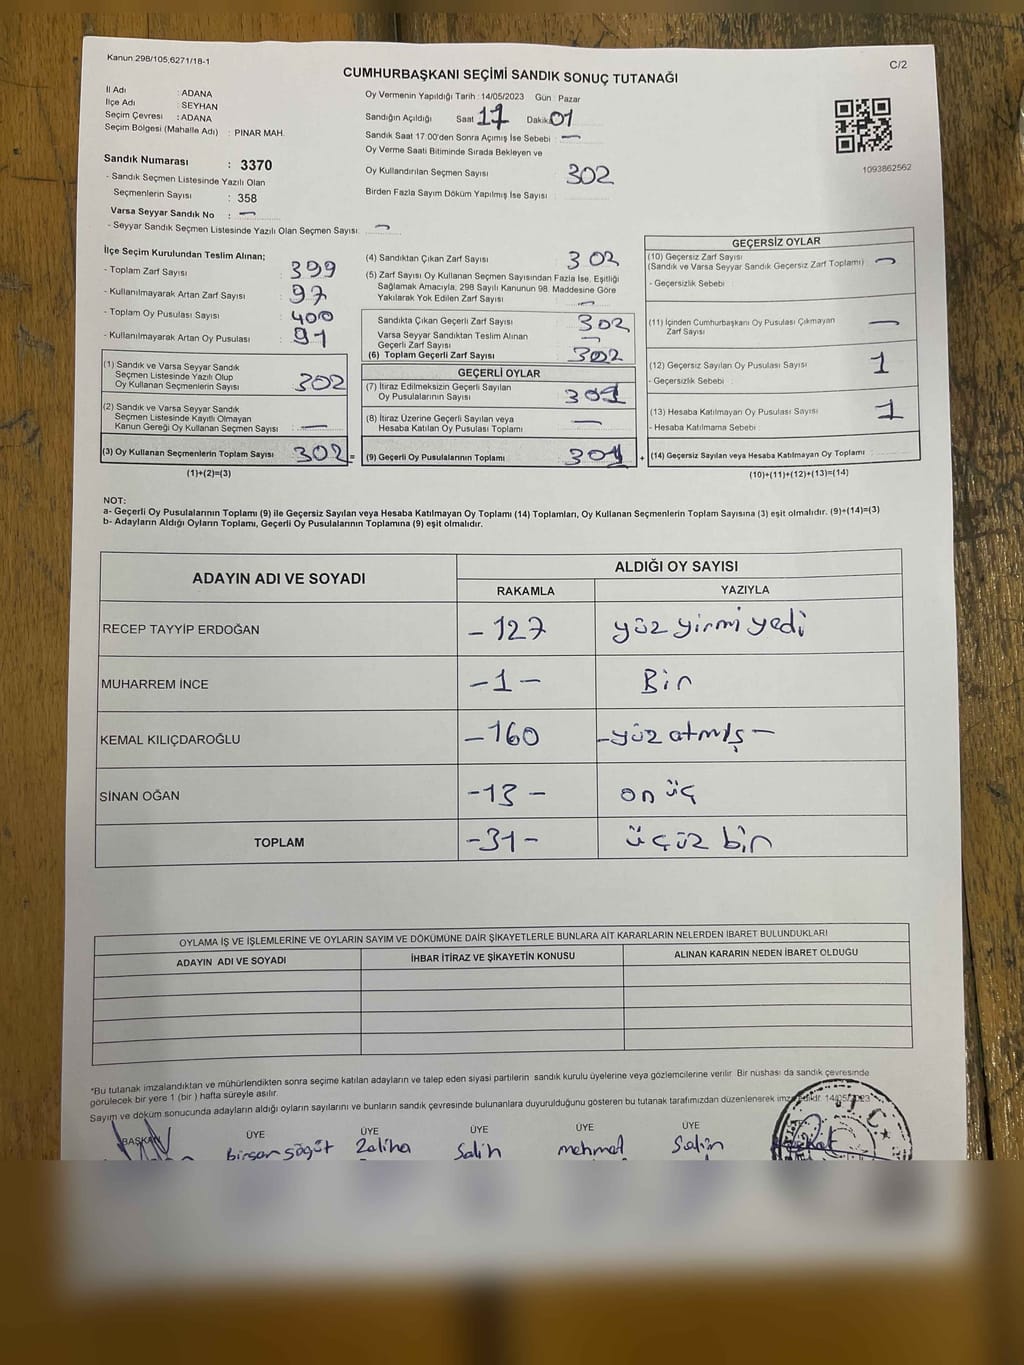 Kanun 298/105,6271/18-1
C/2
CUMHURBAŞKANI SEÇİMİ SANDIK SONUÇ TUTANAĞI
İl Adı : ADANA
İlçe Adı : SEYHAN
Seçim Çevresi : ADANA
Seçim Bölgesi (Mahalle Adı) : PINAR MAH.
Sandık Numarası : 3370
- Sandık Seçmen Listesinde Yazılı Olan
Seçmenlerin Sayısı : 358
Varsa Seyyar Sandık No : —
- Seyyar Sandık Seçmen Listesinde Yazılı Olan Seçmen Sayısı: —
Oy Vermenin Yapıldığı Tarih : 14/05/2023 Gün : Pazar
Sandığın Açıldığı Saat 17 Dakika 01
Sandık Saat 17:00'den Sonra Açımış İse Sebebi : —
Oy Verme Saati Bitiminde Sırada Bekleyen ve
Oy Kullandırılan Seçmen Sayısı 302
Birden Fazla Sayım Döküm Yapılmış İse Sayısı :
1093862562
İlçe Seçim Kurulundan Teslim Alınan;
- Toplam Zarf Sayısı : 399
- Kullanılmayarak Artan Zarf Sayısı : 97
- Toplam Oy Pusulası Sayısı : 400
- Kullanılmayarak Artan Oy Pusulası :
(1) Sandık ve Varsa Seyyar Sandık
Seçmen Listesinde Yazılı Olup
Oy Kullanan Seçmenlerin Sayısı 302
(2) Sandık ve Varsa Seyyar Sandık
Seçmen Listesinde Kayıtlı Olmayan
Kanun Gereği Oy Kullanan Seçmen Sayısı —
(3) Oy Kullanan Seçmenlerin Toplam Sayısı 302 =
(1)+(2)=(3)
(4) Sandıktan Çıkan Zarf Sayısı 302
(5) Zarf Sayısı Oy Kullanan Seçmen Sayısından Fazla İse, Eşitliği
Sağlamak Amacıyla, 298 Sayılı Kanunun 98. Maddesine Göre
Yakılarak Yok Edilen Zarf Sayısı —
Sandıkta Çıkan Geçerli Zarf Sayısı 302
Varsa Seyyar Sandıktan Teslim Alınan
Geçerli Zarf Sayısı —
(6) Toplam Geçerli Zarf Sayısı 302
GEÇERLİ OYLAR
(7) İtiraz Edilmeksizin Geçerli Sayılan
Oy Pusulalarının Sayısı 301
(8) İtiraz Üzerine Geçerli Sayılan veya
Hesaba Katılan Oy Pusulası Toplamı —
(9) Geçerli Oy Pusulalarının Toplamı 301 +
GEÇERSİZ OYLAR
(10) Geçersiz Zarf Sayısı
(Sandık ve Varsa Seyyar Sandık Geçersiz Zarf Toplamı) —
- Geçersizlik Sebebi :
(11) İçinden Cumhurbaşkanı Oy Pusulası Çıkmayan
Zarf Sayısı —
(12) Geçersiz Sayılan Oy Pusulası Sayısı 1
- Geçersizlik Sebebi :
(13) Hesaba Katılmayan Oy Pusulası Sayısı 1
- Hesaba Katılmama Sebebi :
(14) Geçersiz Sayılan veya Hesaba Katılmayan Oy Toplamı
(10)+(11)+(12)+(13)=(14)
NOT:
a- Geçerli Oy Pusulalarının Toplamı (9) ile Geçersiz Sayılan veya Hesaba Katılmayan Oy Toplamı (14) Toplamları, Oy Kullanan Seçmenlerin Toplam Sayısına (3) eşit olmalıdır. (9)+(14)=(3)
b- Adayların Aldığı Oyların Toplamı, Geçerli Oy Pusulalarının Toplamına (9) eşit olmalıdır.
ADAYIN ADI VE SOYADI
ALDIĞI OY SAYISI
RAKAMLA YAZIYLA
RECEP TAYYİP ERDOĞAN - 127 yüz yirmi yedi
MUHARREM İNCE -1- Bin
KEMAL KILIÇDAROĞLU -160 -yüz atmış-
SİNAN OĞAN -13- on üç
TOPLAM -31- üçüz bin
OYLAMA İŞ VE İŞLEMLERİNE VE OYLARIN SAYIM VE DÖKÜMÜNE DAİR ŞİKAYETLERLE BUNLARA AİT KARARLARIN NELERDEN İBARET BULUNDUKLARI
ADAYIN ADI VE SOYADI İHBAR İTİRAZ VE ŞİKAYETİN KONUSU ALINAN KARARIN NEDEN İBARET OLDUĞU
*Bu tutanak imzalandıktan ve mühürlendikten sonra seçime katılan adayların ve talep eden siyasi partilerin sandık kurulu üyelerine veya gözlemcilerine verilir. Bir nüshası da sandık çevresinde
görülecek bir yere 1 (bir) hafta süreyle asılır.
Sayım ve döküm sonucunda adayların aldığı oyların sayılarını ve bunların sandık çevresinde bulunanlara duyurulduğunu gösteren bu tutanak tarafımızdan düzenlenerek imzalandı. 14/05/2023
BAŞKAN ÜYE ÜYE ÜYE ÜYE ÜYE
Birsan Söğüt Zaliha Salih mehmed Salim
T.C.